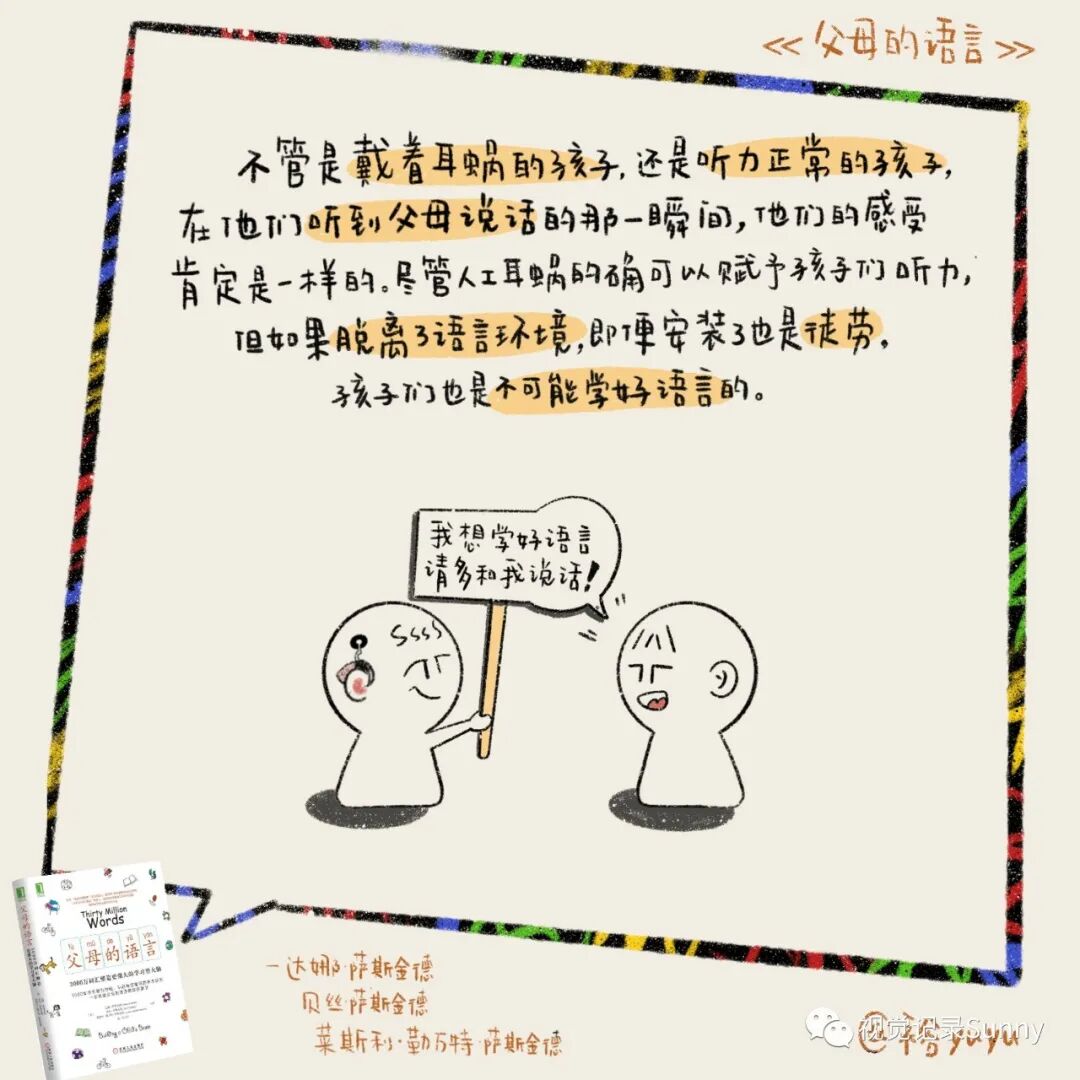 《父母的语言》
不管是戴着耳蜗的孩子,还是听力正常的孩子,
在他们听到父母说话的那一瞬间,他们的感受
肯定是一样的。尽管人工耳蜗的确可以赋予孩子们听力,
但如果脱离了语言环境,即便安装了也是徒劳。
孩子们也是不可能学好语言的。
我想学好语言
请多和我说话!
ssss
Thirty Million
Words
fù mǔ de yǔ yán
父母的语言
3000万词汇塑造更强大的学习型大脑
父母的语言
一达娜·萨斯金德
贝丝·萨斯金德
莱斯利·勒万特·萨斯金德
视觉记录Sunny